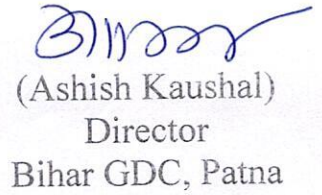 (Ashish Kaushal)
Director
Bihar GDC, Patna